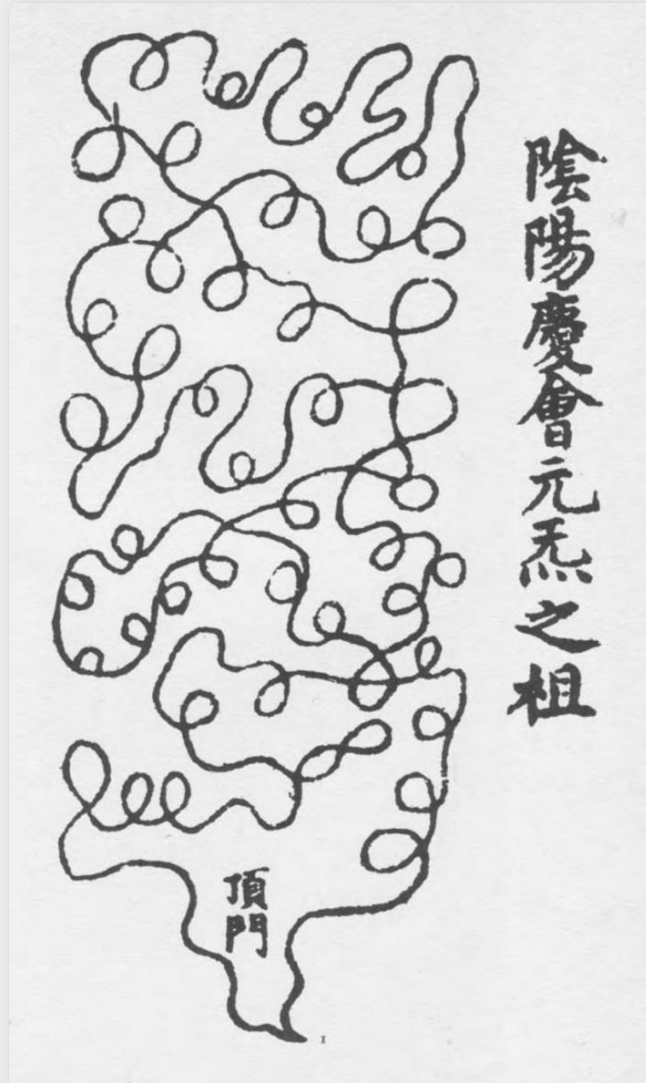 陰陽慶會元炁之祖
頂門